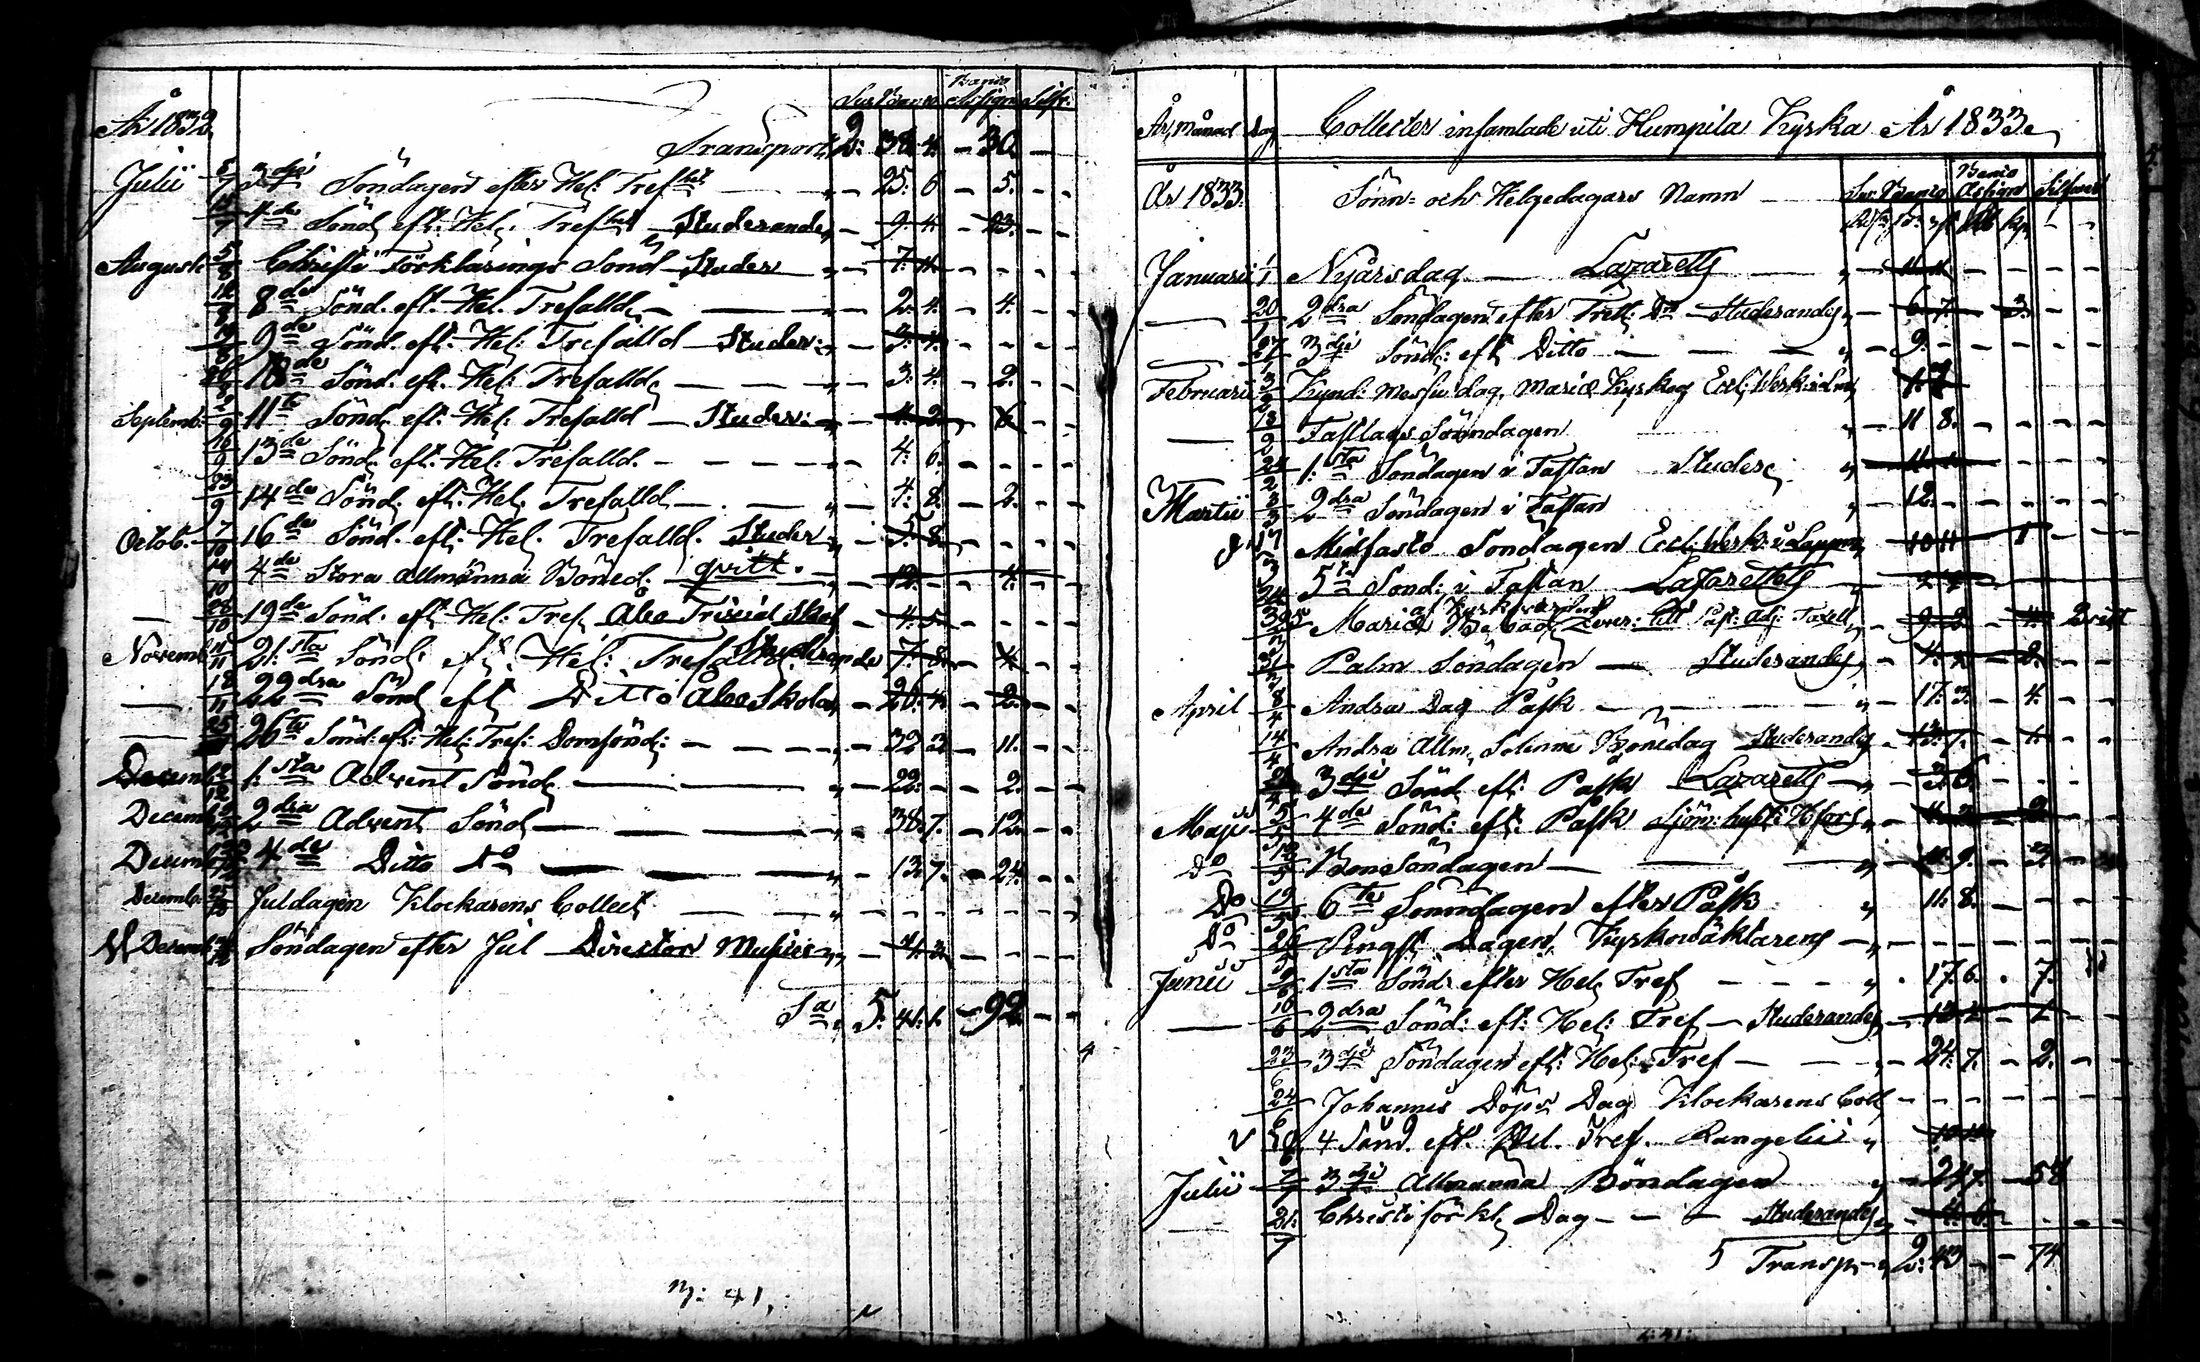 År 1832
Sv: Banco Banco Assign: Silfr:
Transport 2: 38. 4. - 30. -
Julii 8/7 3dje Söndagen efter Hel: Tref:het - - 25. 6 - 5. -
15/7 4de Sönd. eft: Hel: Tref:het Studerande - 9. 4. - 23. -
Augusti 5/8 Christi Förklarings Sönd Studer - 7. 11. - - -
12/8 8de Sönd. eft. Hel. Trefalld. - - 2. 4. - 4. -
19/8 9de Sönd. eft. Hel: Trefalld - Studer: - 3. 4. - - -
26/8 10de Sönd. eft. Hel: Trefalld. - - 3. 4. - 2. -
Septemb: 2/9 11te Sönd. eft: Hel: Trefalld - Studer: - 4. 2. - 6. -
16/9 13de Sönd. eft: Hel: Trefalld. - - 4. 6. - - -
23/9 14de Sönd. eft: Hel. Trefalld - - 4. 8. - 2. -
Octob. 7/10 16de Sönd. eft: Hel. Trefalld. Studer: - 5. 8. - - -
14/10 4de Stora Allmänna Böned: qvitt. - 12. - 4. -
28/10 19de Sönd. eft: Hel: Tref. Åbo Trivial Skol - 4. 5. - - -
Novemb: 11/11 21:sta Sönd: eft: Hel: Trefalld: Studerande 7. 8. - 4. -
18/11 22dra Sönd eft Ditto Åbo Skola - 26. 4. - 2. -
25/11 26te Sönd: eft: Hel: Tref: Domsönd: - - 32 3. - 11. -
Decemb: 2/12 1:sta Advent Sönd. - 22. - - 2. -
Decemb: 9/12 2dra Advent Sönd - 38. 7. - 12. -
Decemb: 4de Ditto Do - 13. 7. - 24. -
Decemb: 25/12 Juldagen Klockarens Collect - - - - -
Decemb: Söndagen efter Jul Director Musices - 4. 3. - - -
Sa 5. 41. 1. - 92. - -
n: 41,
År, Månad Dag Collecter insamlade uti Humpila Kyrka År 1833.
År 1833. Sönn- och Helgedagars Namn Sv: Banco Banco Assign Silfver
Januarii 1 Nyårsdag - Lazaretts - 11. 11
20/1 2dra Söndagen efter Trett: Do Studerandes - 6. 7. - 3. -
27/1 3dje Sönd: eft Ditto - - 9. - - -
Februarii 3/2 Kynd: Messo dag, Mariæ Kyrkog Eccl: Werk i
Fastlags Sönndagen - 11 8. - - -
24/2 1:sta Söndagen i Fastan Studer:
Martii 3/3 2dra Söndagen i Fastan - 12. - - -
17/3 Midfasto Söndagen Eccl: Werk: i Lappm 10 11 - 1 - -
24/3 5te Sönd: i Fastan Lazarettets - 2
25/3 Mariæ Beb:dag
31/3 Palm Söndagen - Studerandes - 4. 2 - 2. -
April 8/4 Andra Dag Påsk - - 17. 3. - 4. -
14/4 Andra Allm. Solenne Bönedag Studerandes - 13. 7. - 1. -
3dje Sönd eft: Påsk Lazaretts - 3. 6. - -
Maji 5/5 4de Sönd: eft: Påsk Sjöm: hust: Hfors 4. 2. - 2. -
Do 12/5 Bönsöndagen - - 11. 9. - 3. -
Do 19/5 6te Sönndagen efter Påsk - 11. 8. - - -
Do 26/5 Pingst Dagen, Kyrkowäktarens - - - - -
Junii 2/6 1sta Sönd: efter Hel: Tref - - 17. 6. - 7. -
16/6 2dra Sönd: eft: Hel: Tref - Studerandes - 13. 2. - 1. -
23/6 3dje Söndagen eft: Hel: Tref - - 24. 7. - 2. -
24/6 Johannis Döps Dag Klockarens Coll - - - -
30/6 4 Sönd. eft. Hel. Tref. Evangelii
Julii 7/7 3dje Allmänna Böndagen - 24 7. - 54
21/7 Christi förkl. Dag - - Studerandes - 4. 6. - -
Transp. 2. 43. - - 74